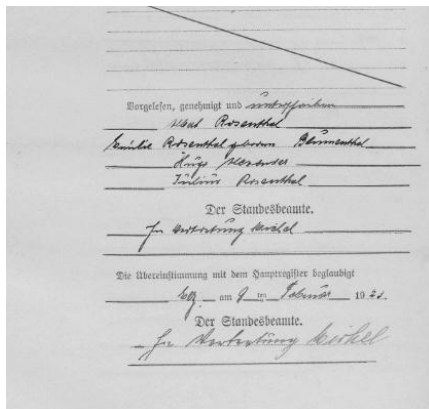 Vorgelesen, genehmigt und unterschrieben
Rosenthal
Emilie Rosenthal geboren Blumenthal
Hugo Alexander
Julius Rosenthal
Der Standesbeamte.
In Vertretung
Die Übereinstimmung mit dem Hauptregister beglaubigt
am 9 ten Februar 192
Der Standesbeamte.
In Vertretung